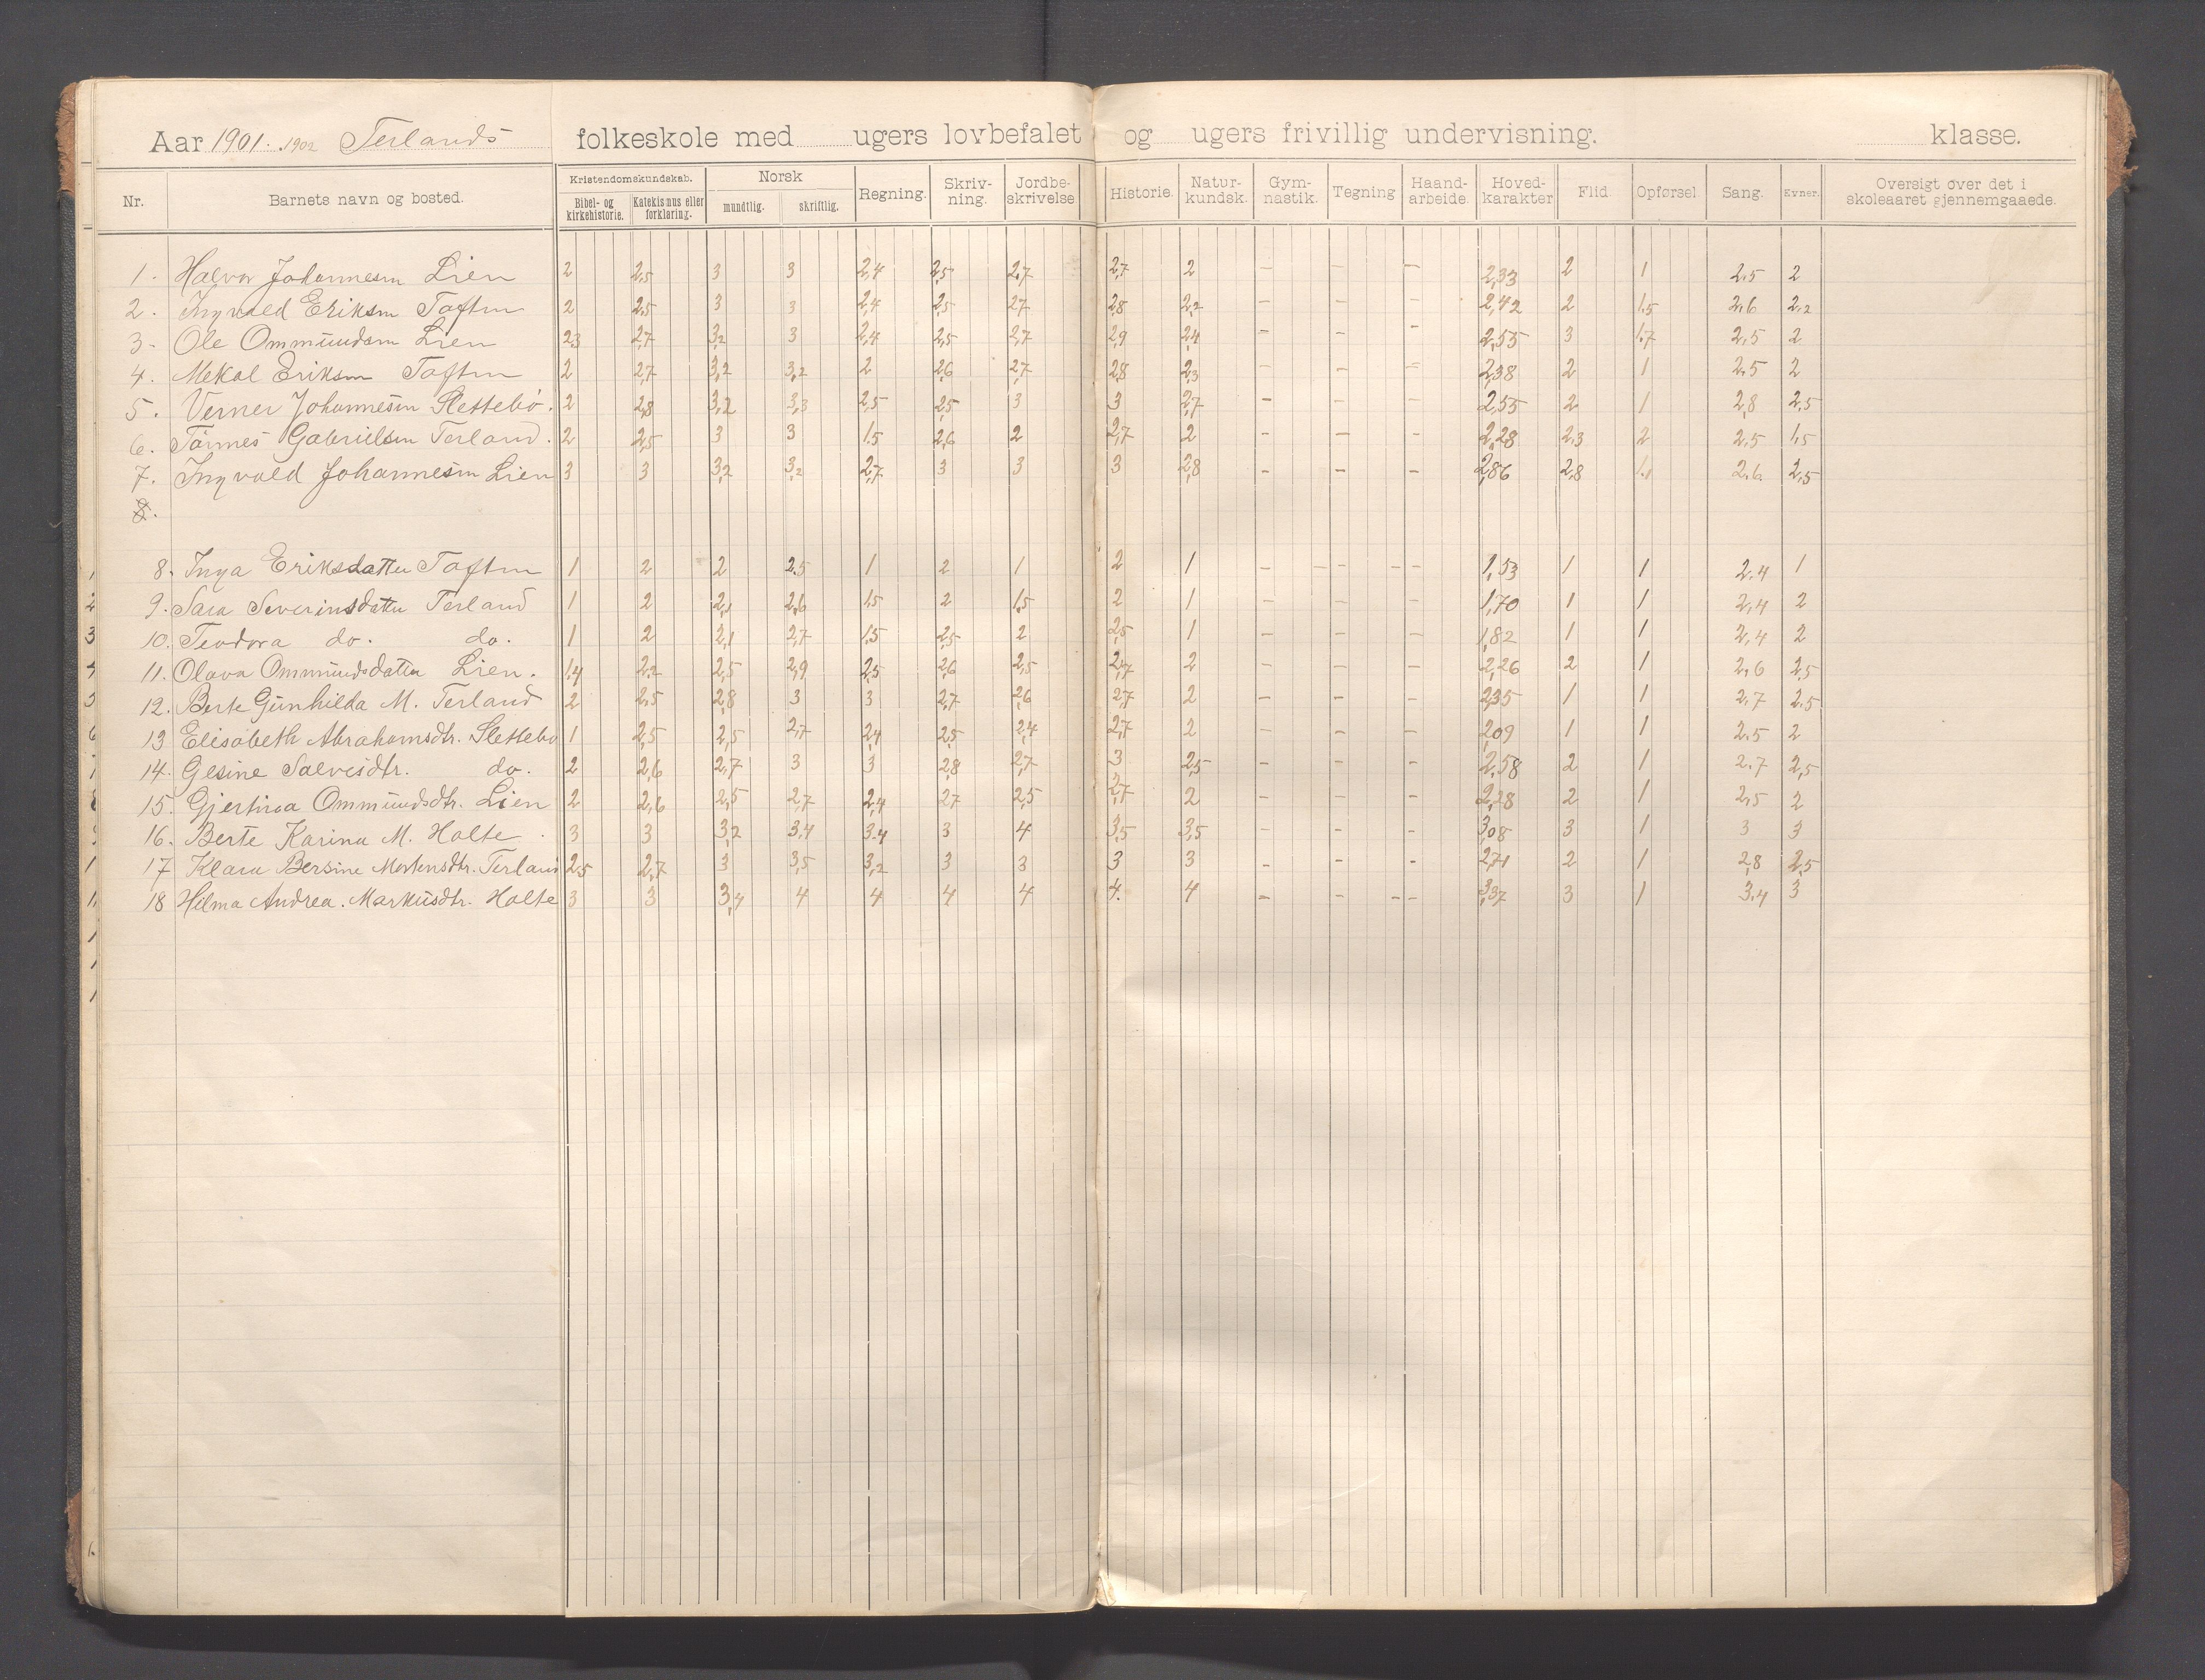 Aar 1901. 1902 Terlands folkeskole med ugers lovbefalet og ugers frivillig undervisning. klasse.
Nr. Barnets navn og bosted. Kristendomskundskab. Bibel- og kirkehistorie. Katekismus eller forklaring. Norsk mundtlig. skriftlig. Regning. Skriv-ning. Jordbe-skrivelse Historie. Natur-kundsk. Gym-nastik. Tegning Haand-arbeide. Hoved-karakter Flid. Opførsel Sang. Evner. Oversigt over det i skoleaaret gjennemgaaede.
1. Halvor Johannesen Lien 2 2,5 3 3 2,4 2,5 2,7 2,7 2 – – – 2,33 2 1 2.5 2
2. Ingvald Eriksen Toften 2 2,5 3 3 2,4 2,5 2,7 2,8 2,2 – – – 2,42 2 1.5 2,6 2,2
3. Ole Ommundsen Lien 2,3 2,7 3,2 3 2,4 2,5 2,7 2,9 2,4 – – – 2,55 3 1.7 2,5 2
4. Mekal Eriksen Toften 2 2,7 3,2 3,2 2 2,6 2,7 2,8 2,3 – – – 2,38 2 1 2.5 2
5. Verner Johannesen Slettebö. 2 2,8 3,2 3,3 2,5 2,5 3 3 2,7 – – – 2,55 2 1 2,8 2,5
6. Tönnes Gabrielsen Terland. 2 2,5 3 3 1.5 2,6 2 2,7 2 – – – 2,28 2,3 2 2.5 1,5
7. Ingvald Johannesen Lien 3 3 3,2 3,2 2,7 3 3 3 2,8 – – – 2,86 2,8 1.1 2.6 2,5
8.
8. Inga Eriksdatter Toften 1 2 2 2.5 1 2 1 2 1 – – – – – 1,53 1 1 2.4 1
9. Sara Severinsdatter Terland 1 2 2,1 2,6 1,5 2 1,5 2 1 – – – 1,70 1 1 2,4 2
10. Teodora do. do. 1 2 2,1 2,7 1,5 2,5 2 2,5 1 – – – 1,82 1 1 2,4 2
11. Olava Ommundsdatter Lien. 1,4 2,2 2,5 2,9 2,5 2,6 2,5 2,7 2 – – – 2,26 2 1 2,6 2,5
12. Berte Gunhilda M. Terland 2 2,5 2,8 3 3 2,7 2,6 2,7 2 – – – 2,35 1 1 2,7 2.5
13 Elisabeth Abrahamsdtr. Slettebö 1 2,5 2,5 2,7 2,4 2,5 2,4 2,7 2 – – – 2,09 1 1 2.5 2
14. Gesine Salvesdtr. do. 2 2,6 2,7 3 3 2,8 2,7 3 2,5 – – – 2,58 2 1 2.7 2,5
15. Gjertina Ommundsdtr. Lien 2 2,6 2,5 2,7 2,4 2,7 2,5 2,7 2 – – – 2,28 2 1 2,5 2
16. Berte Karina M. Holte 3 3 3,2 3,4 3.4 3 4 3,5 3,5 – – – 3,08 3 1 3 3
17 Klara Bersine Mortensdtr. Terland 2,5 2,7 3 3,5 3,2 3 3 3 3 – – – 2,71 2 1 2,8 2,5
18 Hilma Andrea. Markusdtr. Holte 3 3 3,4 4 4 4 4 4. 4 – – – – 3,37 3 1 3.4 3